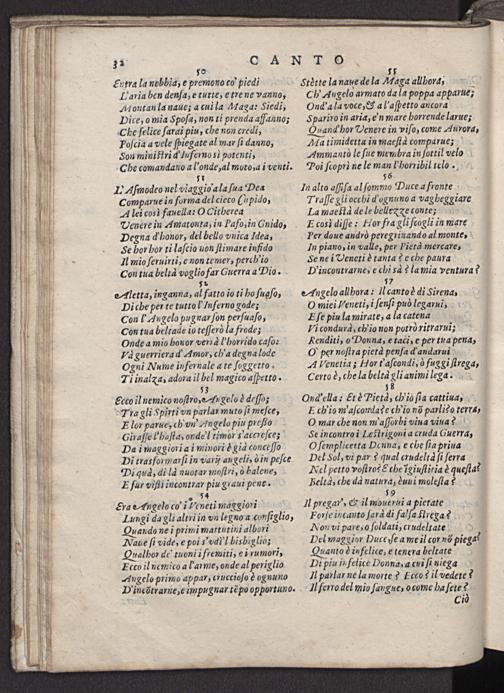 32
CANTO
50
Entra la nebbia, e premono co' piedi
L'aria ben densa, e tutte, e tre ne vanno,
Montan la naue; a cui la Maga: Siedi,
Dice, o mia Sposa, non ti prenda affanno;
Che felice sarai piu, che non credi,
Poscia a vele spiegate al mar si danno,
Son ministri d'Inferno sì potenti,
Che comandano a l'onde, al moto, a i venti.
51
L'Asmodeo nel viaggio a la sua Dea
Comparue in forma del cieco Cupido,
A lei così fauella: O Citherea
Venere in Amatonta, in Pafo, in Gnido,
Degna d'honor, del bello vnica Idea,
Se hor hor ti lascio non stimare infido
Il mio seruirti, e non temer, perch'io
Con tua beltà voglio far Guerra a Dio.
52
Aletta, inganna, al fatto io ti ho suaso,
Di che per te tutto l'Inferno gode;
Con l'Angelo pugnar son persuaso,
Con tua beltade io tesserò la frode;
Onde a mio honor verrà l'horrido caso:
Và guerriera d'Amor, ch'a degna lode
Ogni Nume infernale a te soggetto
Ti inalza, adora il bel magico aspetto.
53
Ecco il nemico nostro, Angelo è desso;
Tra gli Spirti vn parlar muto si mesce,
E lor parue, ch'vn'Angelo piu presso
Girasse l'hasta, onde'l timor s'accresce;
Da i maggiori a i minori è già concesso
Di trasformarsi in varij angelli, ò in pesce
Di quà, di là nuotar mostri, ò balene,
E fur visti incontrar piu graui pene.
54
Era Angelo co' i Veneti maggiori
Lungi da gli altri in vn legno a consiglio,
Quando ne i primi mattutini albori
Naue si vide, e poi s'vdì l bisbiglio;
Qualhor de' tuoni i fremiti, e i rumori,
Ecco il nemico a l'arme, onde al periglio
Angelo primo appar, cruccioso è ognuno
D'incōtrarne, e impugnar tēpo opportuno.
55
Stètte la naue de la Maga allhora,
Ch'Angelo armato da la poppa apparue;
Ond'a la voce, & a l'aspetto ancora
Spariro in aria, e'n mare horrende larue;
Quand'hor Venere in viso, come Aurora,
Ma timidetta in maestà comparue;
Ammantò le sue membra in sottil velo
Poi scoprì ne le man l'horribil telo.
56
In alto assisa al sommo Duce a fronte
Trasse gli occhi d'ognuno a vagheggiare
La maestà de le bellezze conte;
E così disse: Hor fra gli scogli in mare
Per doue andrò peregrinando al monte,
In piano, in valle, per Pietà mercare,
Se ne i Veneti è tanta? e che paura
D'incontrarne, e chi sà? è la mia ventura?
57
Angelo allhora: Il canto è di Sirena,
O miei Veneti, i sensi può legarui,
E se piu la mirate, a la catena
Vi condurà, ch'io non potrò ritrarui;
Renditi, o Donna, e taci, e per tua pena,
O' per nostra pietà pensa d'andarui
A Venetia; Hor t'ascondi, ò fuggi strega,
Certo è, che la beltà gli animi lega.
58
Ond'ella: Et è Pietà, ch'io sia cattiua,
E ch'io m'asconda? e ch'io nō parli? o terra,
O mar che non m'assorbi viua viua?
Se incontro i Lestrigoni a cruda Guerra,
O semplicetta Donna, e che sia priua
Del Sol, vi par? qual crudeltà si serra
Nel petto vostro? E che'giustitia è questa?
Beltà, che dà natura, è vui molesta?
59
Il pregar', & il mouerui a pietate
Forse incanto sarà di falsa strega?
Non vi pare, o soldati, crudeltate
Del maggior Duce, se a me il cor nō piega?
Quanto è infelice, e tenera beltate
Di piu infelice Donna, a cui si niega
Il parlar ne la morte? Ecco? il vedete?
Il ferro del mio sangue, o come ha sete?
Ciò